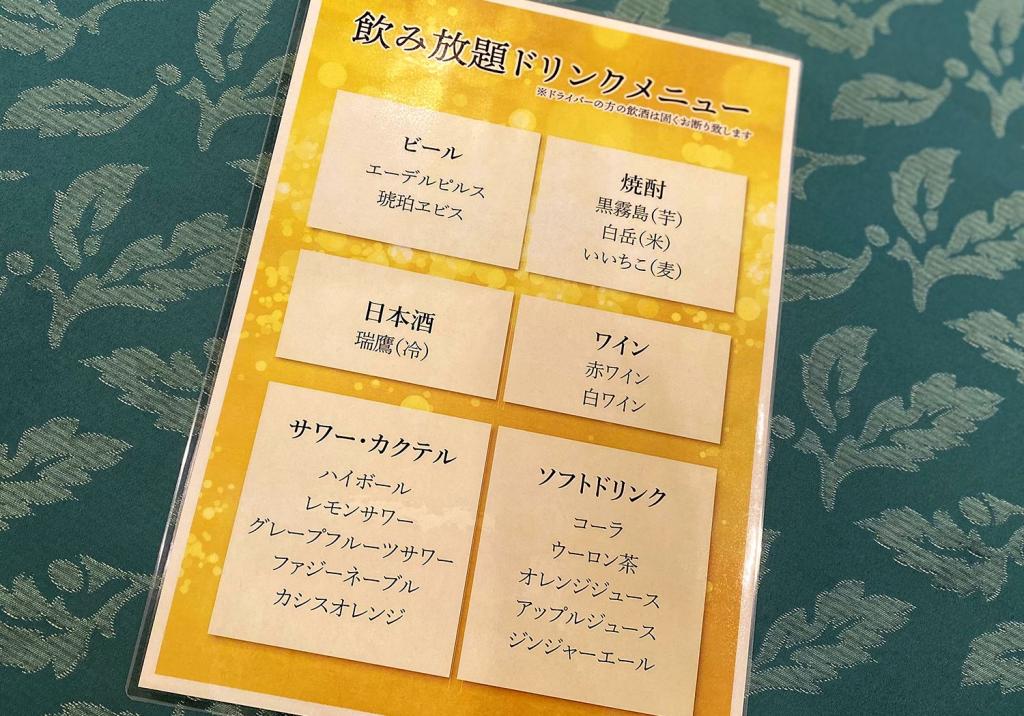 飲み放題ドリンクメニュー
※ドライバーの方の飲酒は固くお断り致します
ビール
エーデルピルス
琥珀ヱビス
焼酎
黒霧島(芋)
白岳(米)
いいちこ(麦)
日本酒
瑞鷹(冷)
ワイン
赤ワイン
白ワイン
サワー・カクテル
ハイボール
レモンサワー
グレープフルーツサワー
ファジーネーブル
カシスオレンジ
ソフトドリンク
コーラ
ウーロン茶
オレンジジュース
アップルジュース
ジンジャーエール